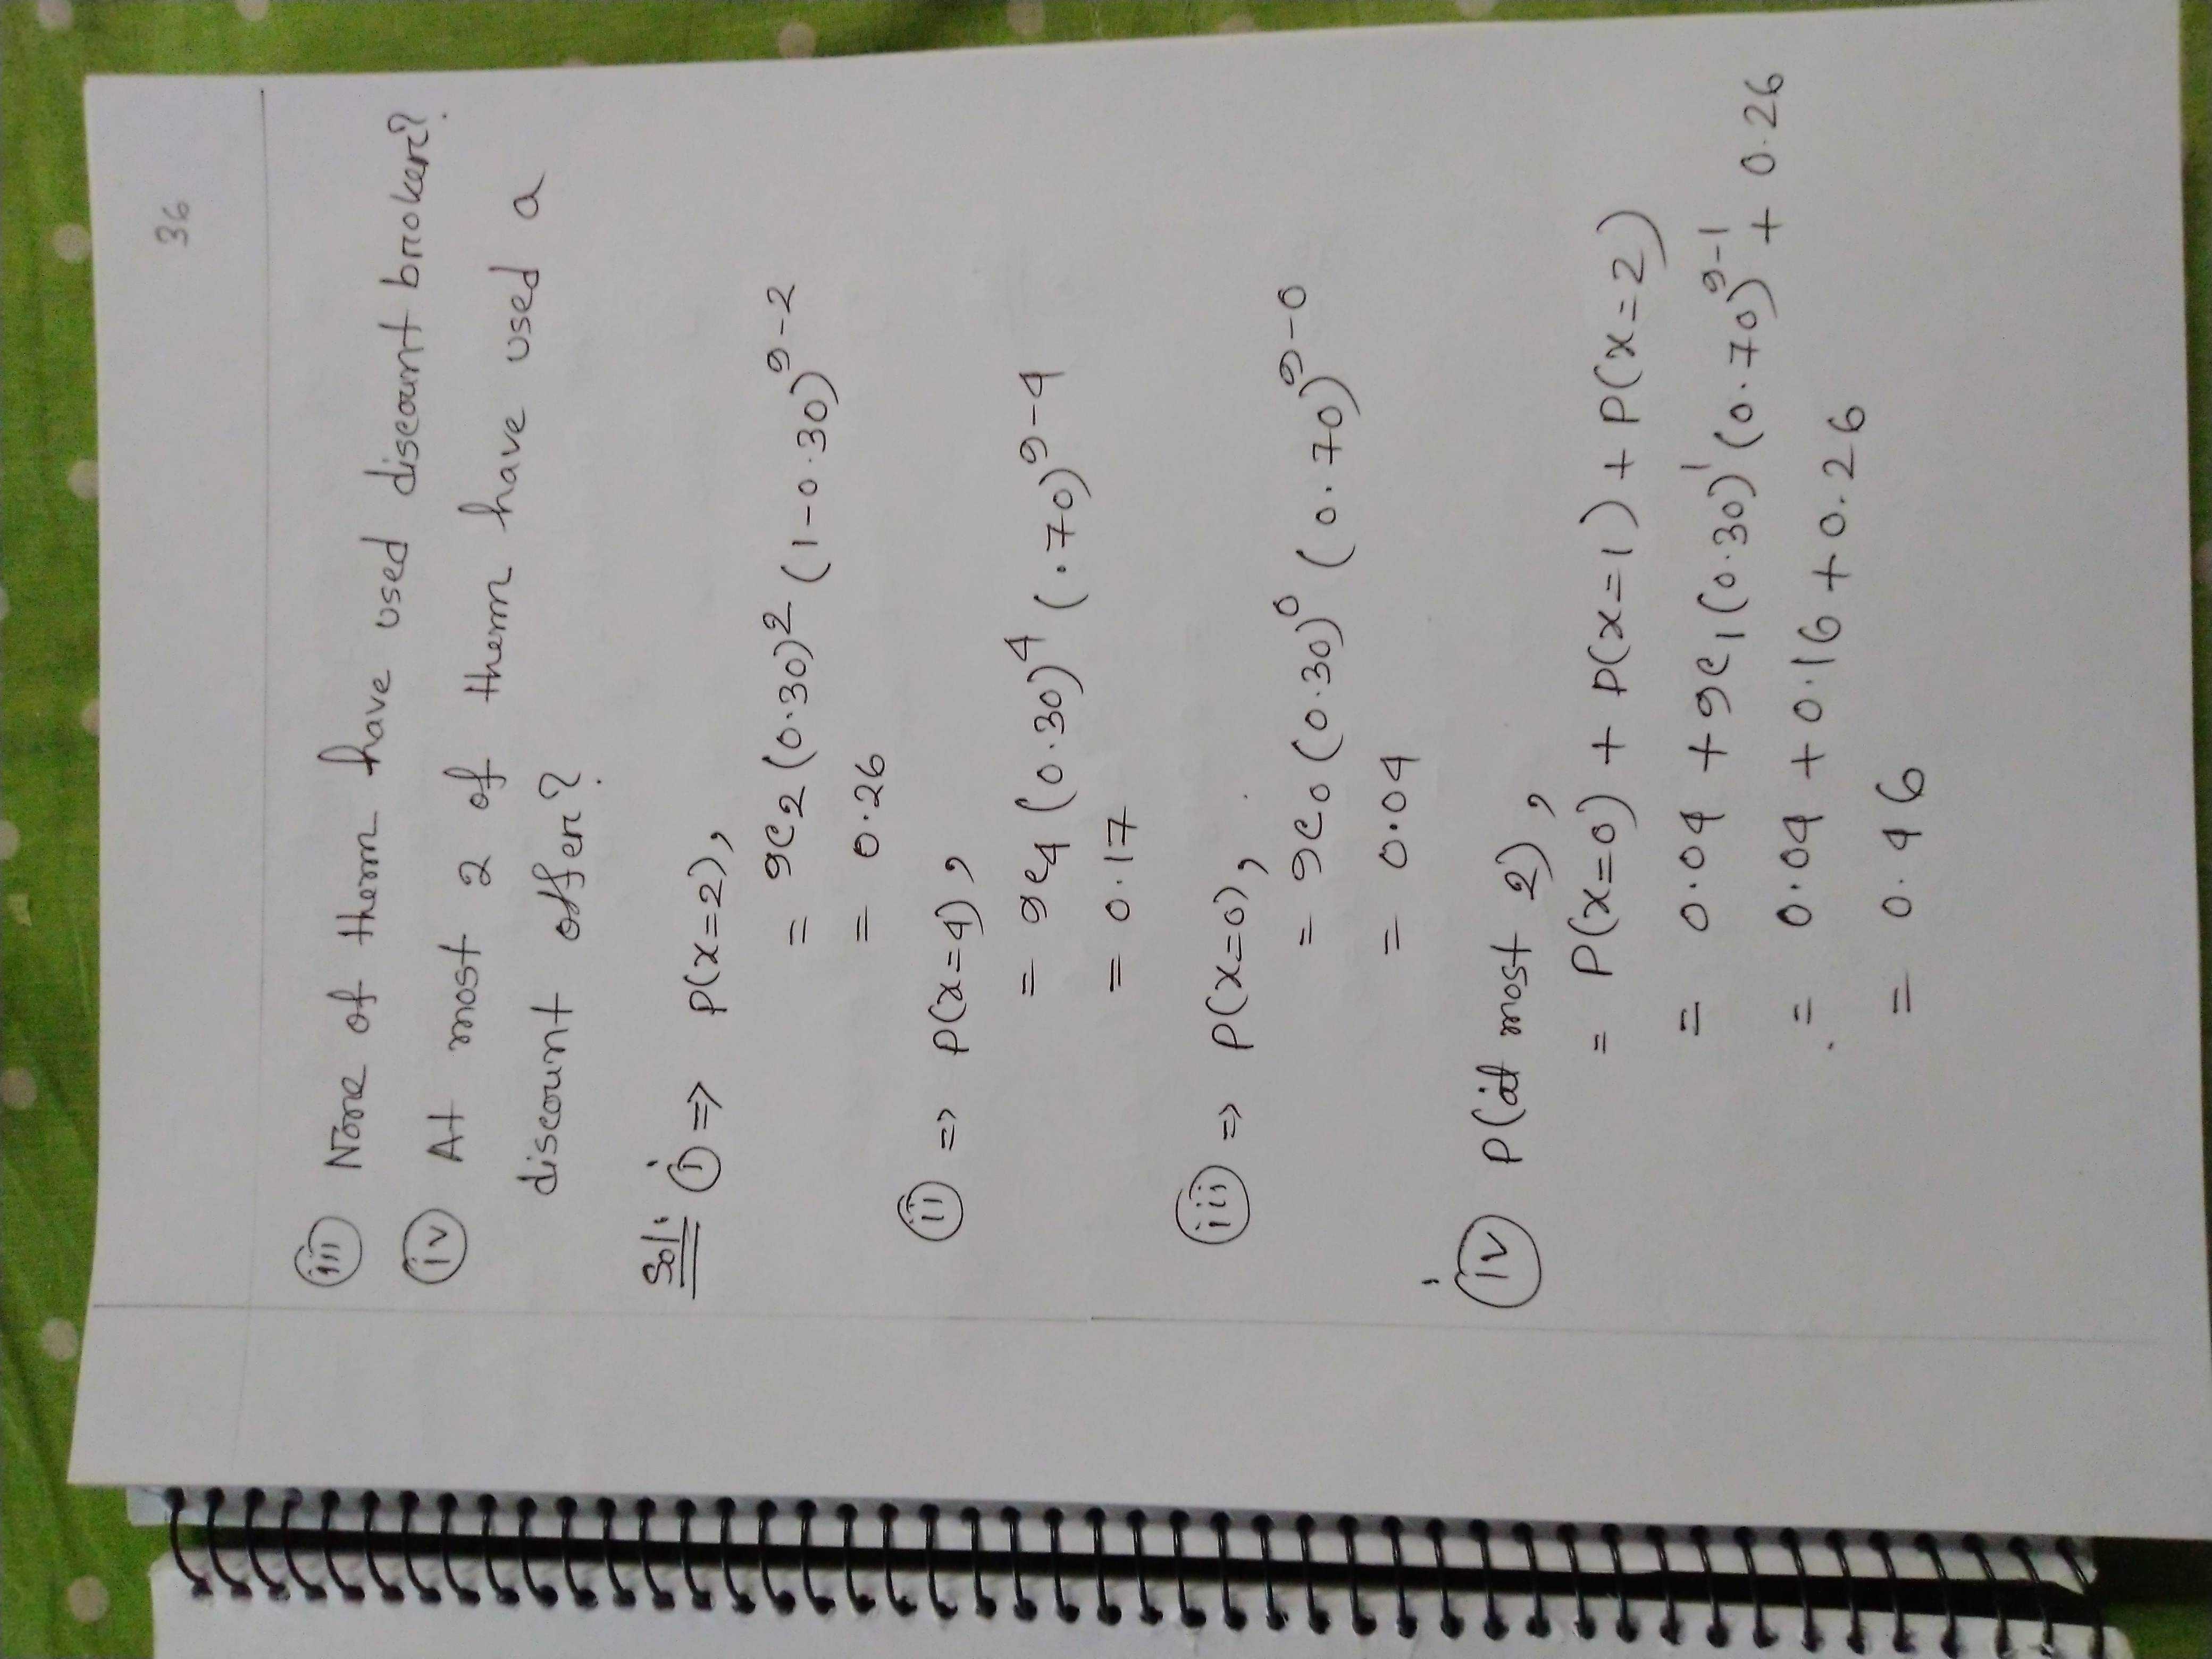 36
(iii) None of them have used discount broker?
(iv) At most 2 of them have used a
discount offer?
Sol: (i) => P(x=2),
= 9C2 (0.30)^2 (1-0.30)^9-2
= 0.26
(ii) => P(x=4),
= 9C4 (0.30)^4 (.70)^9-4
= 0.17
(iii) => P(x=0),
= 9C0 (0.30)^0 (0.70)^9-0
= 0.04
(iv) P(at most 2),
= P(x=0) + P(x=1) + P(x=2)
= 0.04 + 9C1 (0.30)^1 (0.70)^9-1 + 0.26
= 0.04 + 0.16 + 0.26
= 0.46